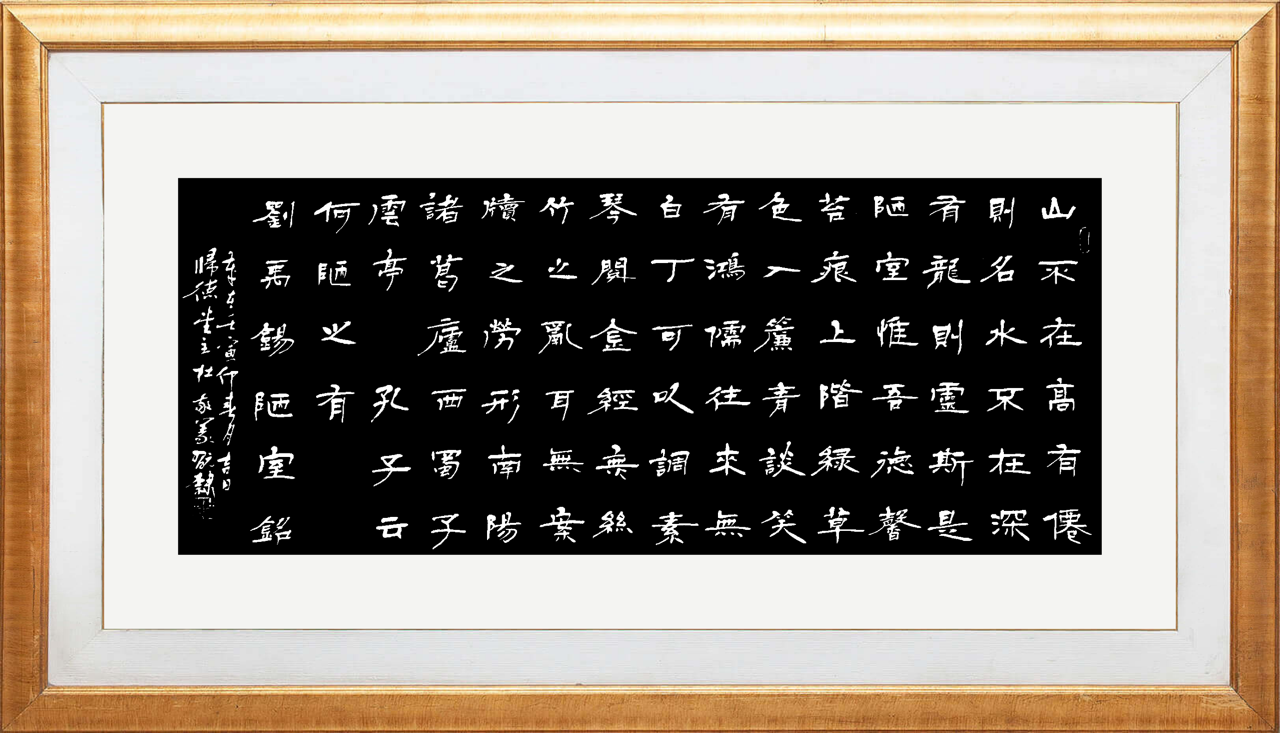 山不在高有僊
則名水不在深
有龍則靈斯是
陋室惟吾德馨
苔痕上階綠草
色入簾青談笑
有鴻儒往來無
白丁可以調素
琴閱金經無絲
竹之亂耳無案
牘之勞形南陽
諸葛廬西蜀子
雲亭 孔子云
何陋之有
劉禹錫陋室銘
壬寅仲春月吉日
歸德堂主杜